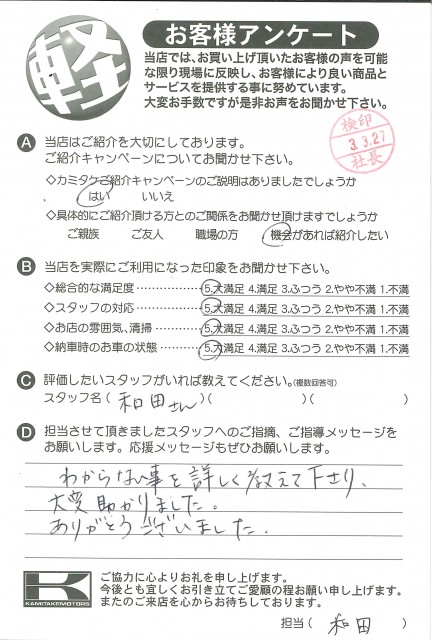 軽
お客様アンケート
当店では、お買い上げ頂いたお客様の声を可能
な限り現場に反映し、お客様により良い商品と
サービスを提供する事に努めています。
大変お手数ですが是非お声をお聞かせ下さい。
検印
3.3.27
社長
A 当店はご紹介を大切にしております。
ご紹介キャンペーンについてお聞かせ下さい。
◇カミタケご紹介キャンペーンのご説明はありましたでしょうか
はい いいえ
◇具体的にご紹介頂ける方とのご関係をお聞かせ頂けますでしょうか
ご親族 ご友人 職場の方 機会があれば紹介したい
B 当店を実際にご利用になった印象をお聞かせ下さい。
◇総合的な満足度……………5.大満足 4.満足 3.ふつう 2.やや不満 1.不満
◇スタッフの対応……………5.大満足 4.満足 3.ふつう 2.やや不満 1.不満
◇お店の雰囲気、清掃………5.大満足 4.満足 3.ふつう 2.やや不満 1.不満
◇納車時のお車の状態………5.大満足 4.満足 3.ふつう 2.やや不満 1.不満
C 評価したいスタッフがいれば教えてください。(複数回答可)
スタッフ名(和田さん)( )( )
D 担当させて頂きましたスタッフへのご指摘、ご指導メッセージを
お願いします。応援メッセージもぜひお願いします。
わからない事を詳しく教えて下さり、
大変助かりました。
ありがとうございました。
K
KAMITAKEMOTORS
ご協力に心よりお礼を申し上げます。
今後とも宜しくお引き立てご愛顧の程お願い申し上げます。
またのご来店を心からお待ちしております。
担当( 和田 )